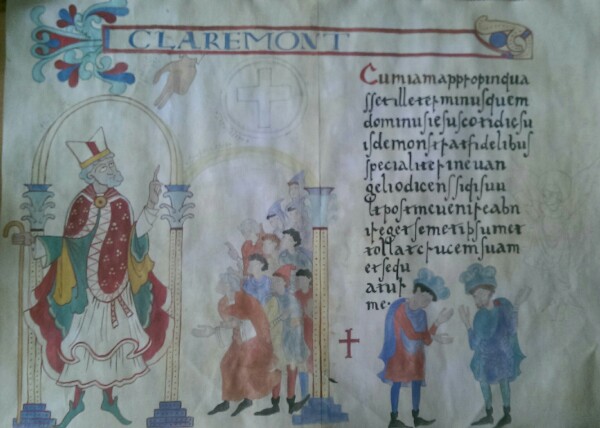 CLAREMONT
Cumiamappropinqua
ssetilleterminusquem
dominusiesuscotidiesu
isdemonstratfidelibus
specialiterineuan
geliodicenssiqisuu
ltpostmeuenireabn
egetsemetipsumet
tollatcrucemsuam
etsequ
atur
me·